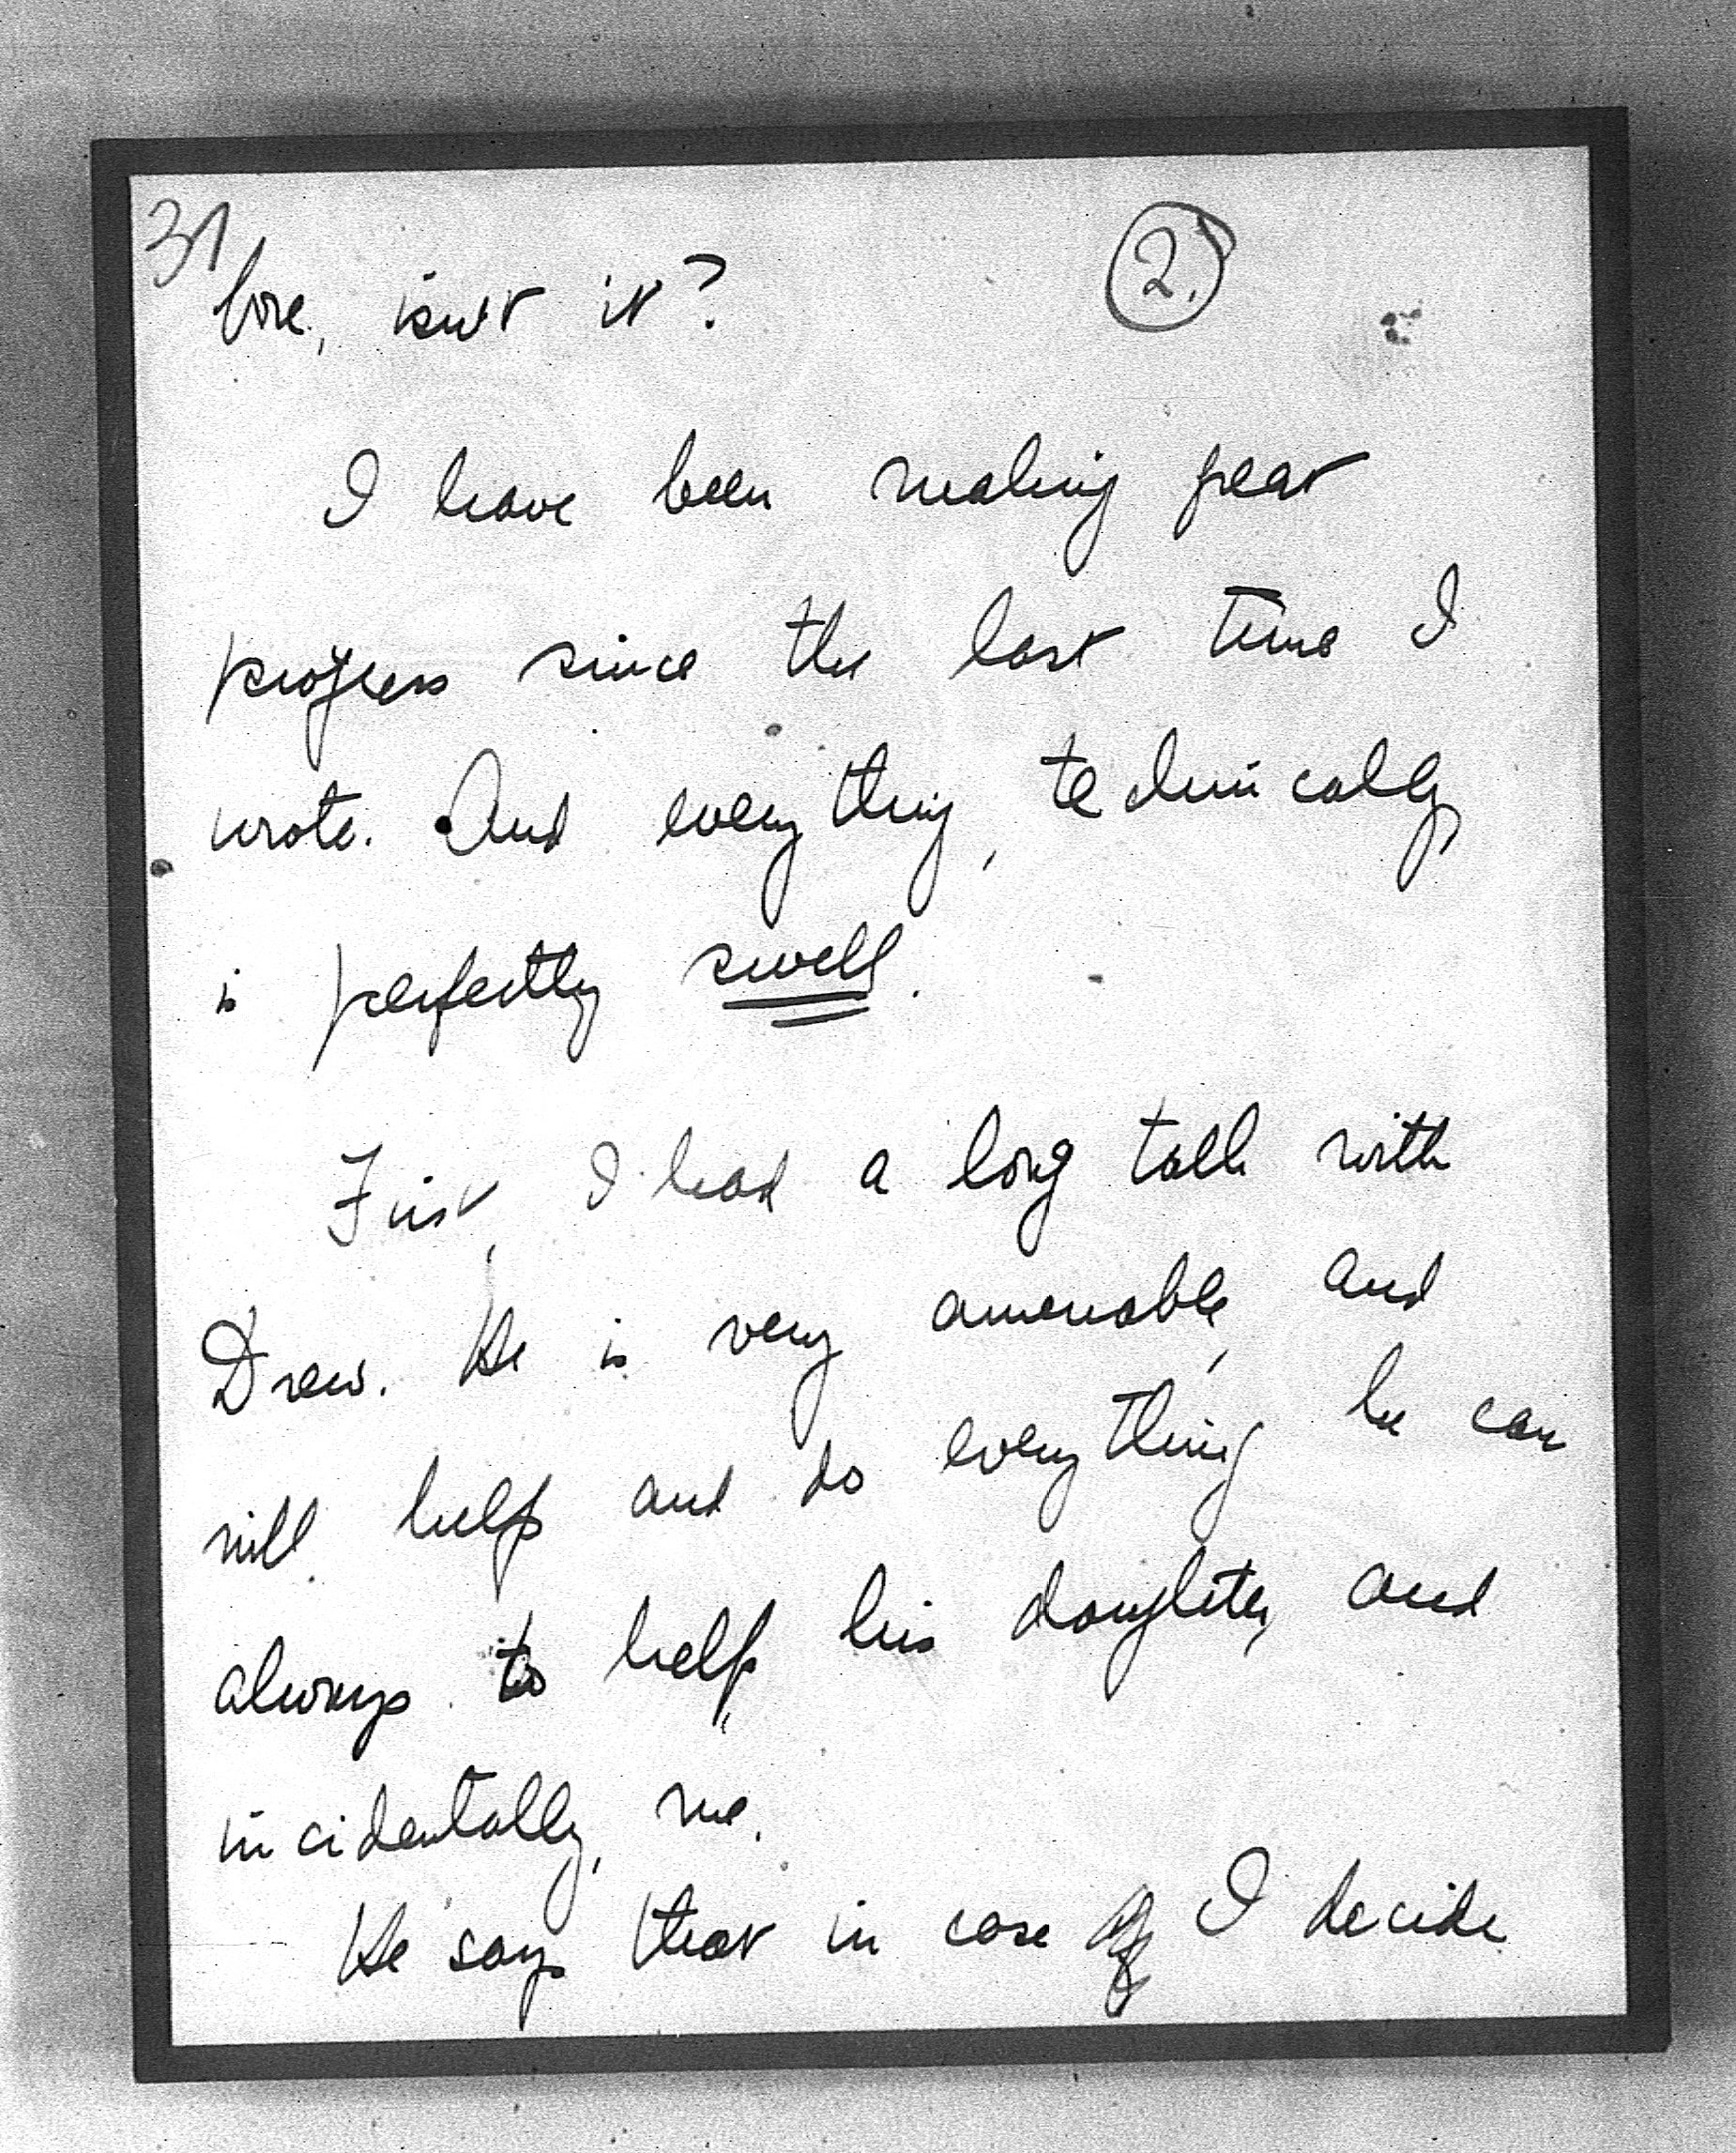 31
2.
bore, isn't it?
I have been making great
progress since the last time I
wrote. And everything, technically,
is perfectly swell.
First, I had a long talk with
Drew. He is very amenable, and
will help and do everything he can
always to help his daughter, and
incidentally, me.
He says that in case I decide